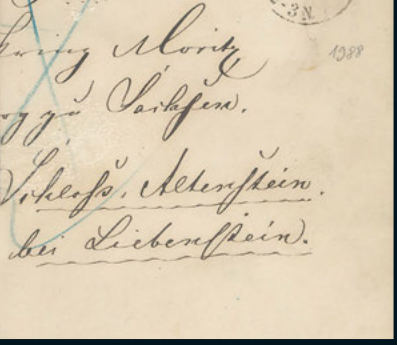 3 N
Prinz Moritz
1988
zu Sachsen.
Schloss. Altenstein.
bei Liebenstein.